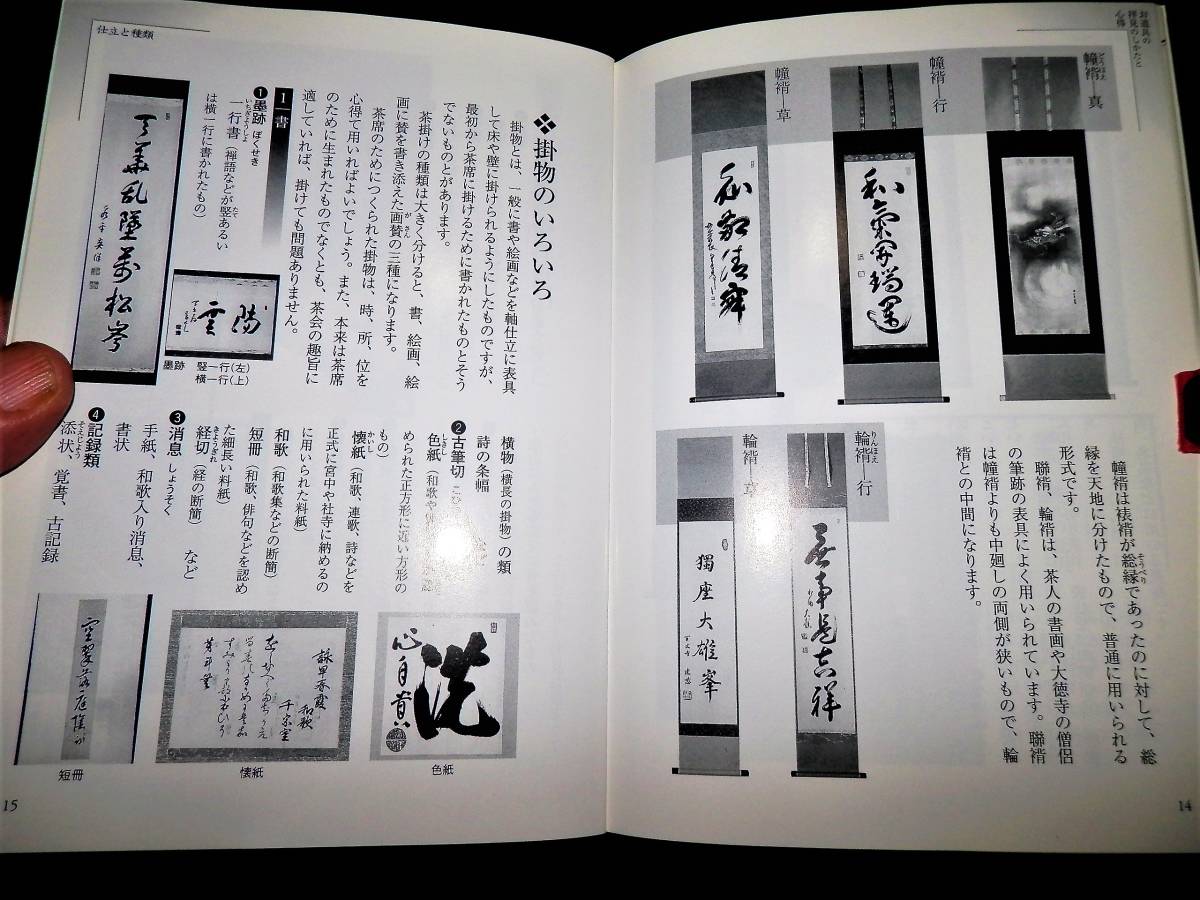 お道具の
拝見のしかたと
心得
幢褙―真
幢褙―行
幢褙―草
和敬清寂
輪褙―行
輪褙―草
無事是吉祥
獨座大雄峯
幢褙は裱褙が総縁であったのに対して、総
縁を天地に分けたもので、普通に用いられる
形式です。
聯褙、輪褙は、茶人の書画や大徳寺の僧侶
の筆跡の表具によく用いられています。聯褙
は幢褙よりも中廻しの両側が狭いもので、輪
褙との中間になります。
14
仕立と種類
❖掛物のいろいろ
掛物とは、一般に書や絵画などを軸仕立に表具
して床や壁に掛けられるようにしたものですが、
最初から茶席に掛けるために書かれたものとそう
でないものとがあります。
茶掛けの種類は大きく分けると、書、絵画、絵
画に賛を書き添えた画賛の三種になります。
茶席のためにつくられた掛物は、時、所、位を
心得て用いればよいでしょう。また、本来は茶席
のために生まれたものでなくとも、茶会の趣旨に
適していれば、掛けても問題ありません。
Ⅰ 書
❶墨跡 ぼくせき
一行書（禅語などが竪あるい
は横一行に書かれたもの）
墨跡 竪一行(左)
横一行(上)
横物（横長の掛物）の類
詩の条幅
❷古筆切 こひ
色紙（和歌や
められた正方形に近い方形の
もの）
懐紙（和歌、連歌、詩などを
正式に宮中や社寺に納めるの
に用いられた料紙）
和歌（和歌集などの断簡）
短冊（和歌、俳句などを認め
た細長い料紙）
経切（経の断簡）など
❸消息 しょうそく
手紙、和歌入り消息、
書状
❹記録類
添状、覚書、古記録
色紙
懐紙
短冊
15